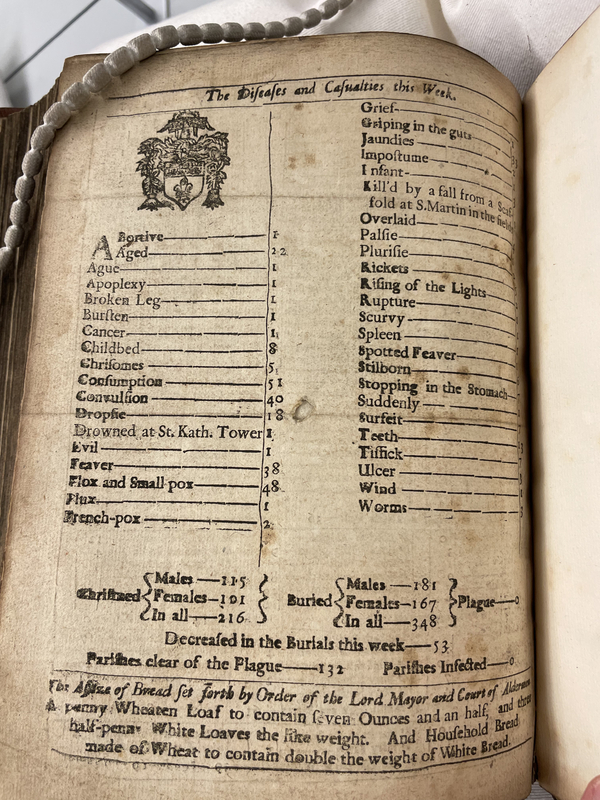 The Diſeaſes and Caſualties this Week.
Abortive 1
Aged 22
Ague 1
Apoplexy 1
Broken Leg 1
Burſten 1
Cancer 1
Childbed 8
Chriſomes 5
Conſumption 51
Convulſion 40
Dropſie 18
Drowned at St. Kath. Tower 1
Evil 1
Feaver 38
Flox and Small-pox 48
Flux 1
French-pox 2
Grief
Griping in the guts
Jaundies
Impoſtume
Infant
Kill'd by a fall from a
fold at S. Martin in the
Overlaid
Palſie
Pluriſie
Rickets
Riſing of the Lights
Rupture
Scurvy
Spleen
Spotted Feaver
Stilborn
Stopping in the Stomach
Suddenly
Surfeit
Teeth
Tiſſick
Ulcer
Wind
Worms
Chriſtned { Males 115 Females 101 In all 216 }
Buried { Males 181 Females 167 In all 348 } Plague 0
Decreaſed in the Burials this week 53
Pariſhes clear of the Plague 132 Pariſhes Infected 0
The Aſſize of Bread ſet forth by Order of the Lord Mayor and Court of
A penny Wheaten Loaf to contain ſeven Ounces and an half, and three
half-penny White Loaves the like weight. And Houſhold Bread
made of Wheat to contain double the weight of White Bread.